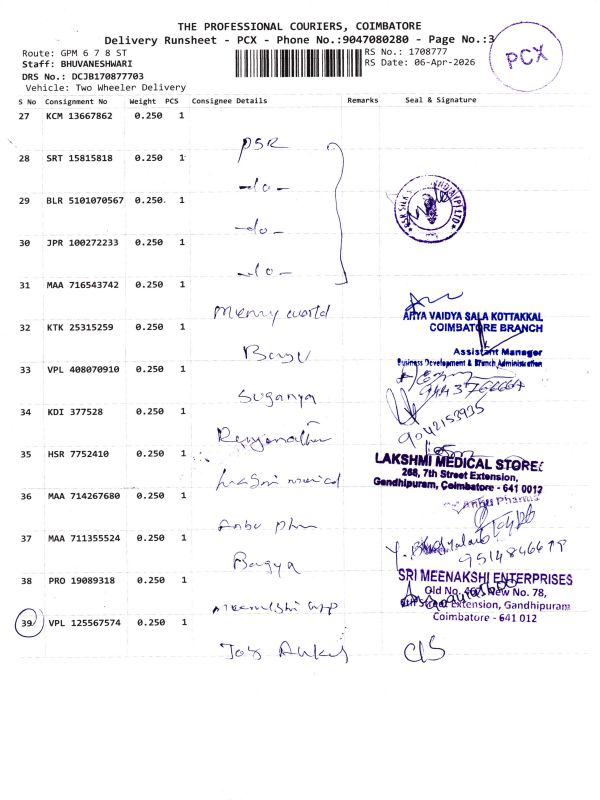 THE PROFESSIONAL COURIERS, COIMBATORE
Delivery Runsheet - PCX - Phone No.:9047080280 - Page No.:3
PCX
Route: GPM 6 7 8 ST
RS No.: 1708777
Staff: BHUVANESHWARI
RS Date: 06-Apr-2026
DRS No.: DCJB170877703
Vehicle: Two Wheeler Delivery
S No Consignment No Weight PCS Consignee Details Remarks Seal & Signature
27 KCM 13667862 0.250 1
PSR
28 SRT 15815818 0.250 1
-do-
29 BLR 5101070567 0.250 1
-do-
30 JPR 100272233 0.250 1
-do-
31 MAA 716543742 0.250 1
Merry world
ARYA VAIDYA SALA KOTTAKKAL
COIMBATORE BRANCH
32 KTK 25315259 0.250 1
Assistant Manager
Business Development & Branch Administration
33 VPL 408070910 0.250 1
Suganya
34 KDI 377528 0.250 1
9042153935
35 HSR 7752410 0.250 1
LAKSHMI MEDICAL STORES
268, 7th Street Extension,
Gandhipuram, Coimbatore - 641 0012
36 MAA 714267680 0.250 1
Anbu Pharma
Anbu phm
37 MAA 711355524 0.250 1
Bagya
9514846679
38 PRO 19089318 0.250 1
SRI MEENAKSHI ENTERPRISES
Old No. New No. 78,
Street Extension, Gandhipuram
Coimbatore - 641 012
39 VPL 125567574 0.250 1